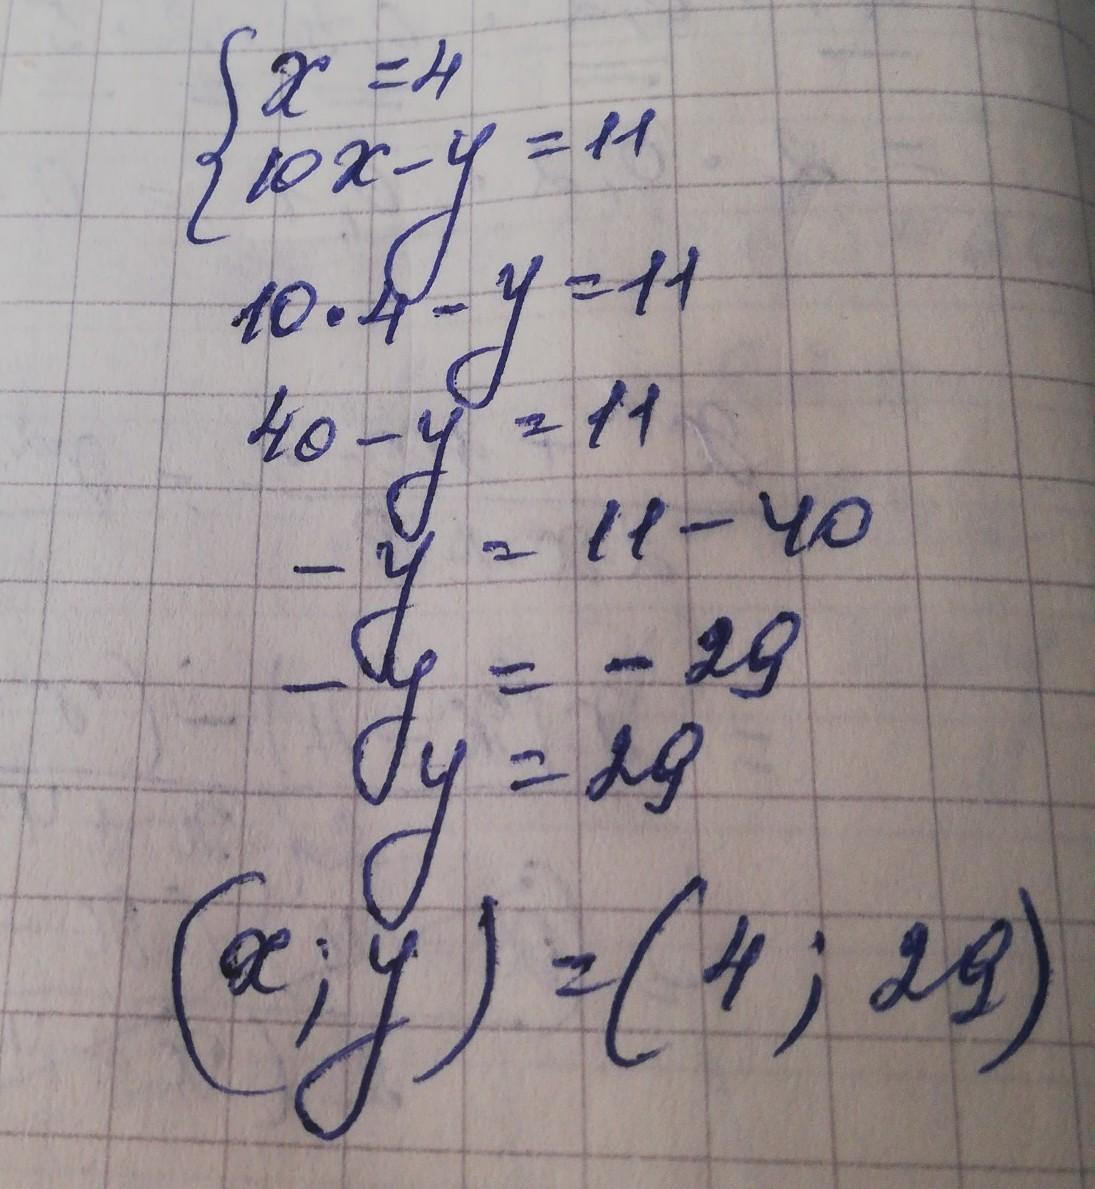 { x = 4
10x - y = 11
10 · 4 - y = 11
40 - y = 11
- y = 11 - 40
- y = - 29
y = 29
(x; y) = (4; 29)